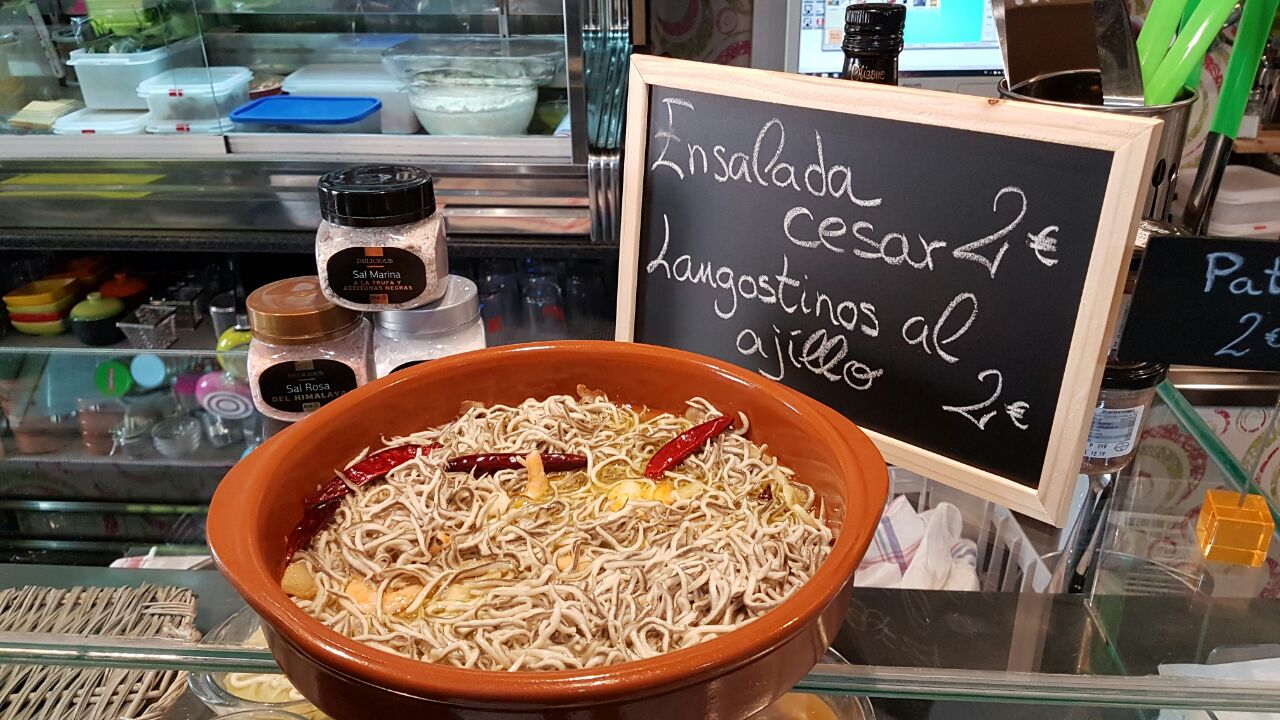 Ensalada
cesar 2€
Langostinos al
ajillo 2€
DELICIOUS
Sal Marina
A LA TRUFA Y
ACEITUNAS NEGRAS
DELICIOUS
Sal Rosa
DEL HIMALAYA
Pat
2€